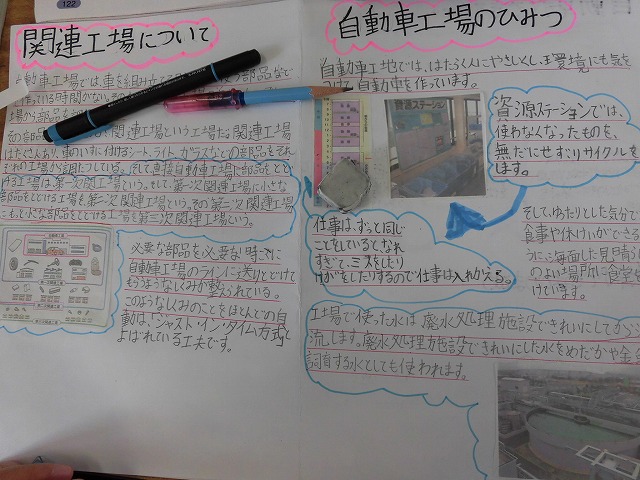 122
関連工場について
自動車工場では車を組み立てる
作っている時間がない
関連工場という工場だ。関連工場
はたくさんあり、車のいすに付けるシート、ライト、ガラスなどの部品をそれ
ぞれの工場が専用につくっている。そして、直接自動車工場に部品をとど
ける工場は第一次関工場という。そして、第一次関連工場に小さな
部品をとどける工場を第二次関連工場という。その第二次関連工場
にもっと小さな部品をとどける工場を第三次関連工場という。
必要な部品を必要な時こくに
自動車工場のラインに送りとどけて
もらうようなしくみが整えられている。
このようなしくみのことをほとんどの自
動は、「ジャスト・イン・タイム方式」と
よばれている工夫です。
自動車工場のひみつ
自動車工地では、はたらく人にやさしくし、環境にも気を
自動車を作っています。
資源ステーション
資源ステーションでは、
使わなくなったものを、
無だにせずにリサイクルを
します。
仕事は、ずっと同じ
ことをしているとなれ
すぎて、ミスをしたり
けがをしたりするので仕事は入れかえる。
そして、ゆったりとした気分で
食事や休けいができる
うに、海に面した見晴らし
のよい場所に食堂を
けています。
工場で使った水は廃水処理施設できれいにしてから
流します。廃水処理施設できれいにした水をめだかや金
飼育する水としても使われます。